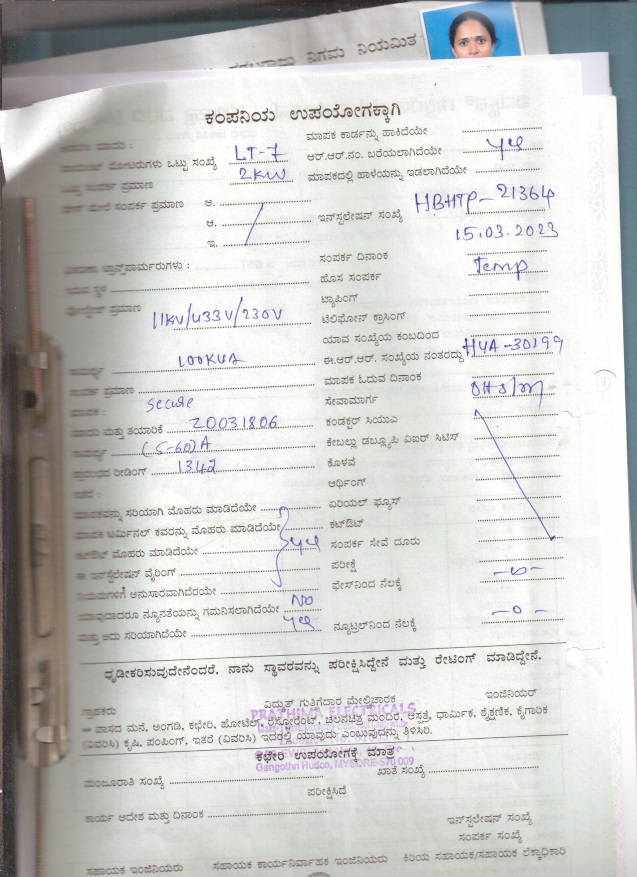 ನಿಗಮ ನಿಯಮಿತ
ಕಂಪನಿಯ ಉಪಯೋಗಕ್ಕಾಗಿ
ಮಾಪಕ ಕಾರ್ಡನ್ನು ಹಾಕಿದೆಯೇ
ಮೀಟರುಗಳು ಒಟ್ಟು ಸಂಖ್ಯೆ LT-7 ಆರ್.ಆರ್.ನಂ. ಬರೆಯಲಾಗಿದೆಯೇ yes
ಒಟ್ಟು ಸಂಪರ್ಕ ಪ್ರಮಾಣ 2KW ಮಾಪಕದಲ್ಲಿ ಹಾಳೆಯನ್ನು ಇಡಲಾಗಿದೆಯೇ
ಮೇಲೆ ಸಂಪರ್ಕ ಪ್ರಮಾಣ ಅ.
ಆ. ಇನ್‌ಸ್ಟಲೇಷನ್ ಸಂಖ್ಯೆ HBHTP-21364
ಇ. 15.03.2023
ಟ್ರಾನ್ಸ್‌ಫಾರ್ಮರುಗಳು : ಸಂಪರ್ಕ ದಿನಾಂಕ
ಹೊಸ ಸಂಪರ್ಕ Temp
ಪ್ರಮಾಣ ಟ್ಯಾಪಿಂಗ್
11KV/433V/230V ಟೆಲಿಫೋನ್ ಕ್ರಾಸಿಂಗ್
ಯಾವ ಸಂಖ್ಯೆಯ ಕಂಬದಿಂದ
100KVA ಈ.ಆರ್.ಆರ್. ಸಂಖ್ಯೆಯ ನಂತರದ್ದು HYA-30199
ಸಂಪರ್ಕ ಪ್ರಮಾಣ ಮಾಪಕ ಓದುವ ದಿನಾಂಕ
ಮಾಪಕ : secure ಸೇವಾಮಾರ್ಗ
ಮತ್ತು ತಯಾರಿಕೆ 20031806 ಕಂಡಕ್ಟರ್ ಸಿಯುಎ
(5-60)A ಕೇಬಲ್ಲು ಡಬ್ಲ್ಯೂಪಿ ವಿಐರ್ ಸಿಟಿಸ್
ಪ್ರಾರಂಭದ ರೀಡಿಂಗ್ 1342 ಕೊಳವೆ
ಇತರೆ : ಅರ್ಥಿಂಗ್
ಮಾಪಕವನ್ನು ಸರಿಯಾಗಿ ಮೊಹರು ಮಾಡಿದೆಯೇ ಏರಿಯಲ್ ಫ್ಯೂಸ್
ಮಾಪಕ ಟರ್ಮಿನಲ್ ಕವರನ್ನು ಮೊಹರು ಮಾಡಿದೆಯೇ ಕಟ್‌ಔಟ್
ಕಟ್‌ಔಟ್ ಮೊಹರು ಮಾಡಿದೆಯೇ yes ಸಂಪರ್ಕ ಸೇವೆ ದೂರು
ಈ ಇನ್‌ಸ್ಟಲೇಷನ್ ವೈರಿಂಗ್ ಪರೀಕ್ಷೆ
ನಿಯಮಗಳಿಗೆ ಅನುಸಾರವಾಗಿದೆಯೇ ಫೇಸ್‌ನಿಂದ ನೆಲಕ್ಕೆ -0-
ಯಾವುದಾದರೂ ನ್ಯೂನತೆಯನ್ನು ಗಮನಿಸಲಾಗಿದೆಯೇ No
ಮತ್ತು ಅದು ಸರಿಯಾಗಿದೆಯೇ yes ನ್ಯೂಟ್ರಲ್‌ನಿಂದ ನೆಲಕ್ಕೆ -0-
ಧೃಡೀಕರಿಸುವುದೇನೆಂದರೆ, ನಾನು ಸ್ಥಾವರವನ್ನು ಪರೀಕ್ಷಿಸಿದ್ದೇನೆ ಮತ್ತು ರೇಟಿಂಗ್ ಮಾಡಿದ್ದೇನೆ.
ಗ್ರಾಹಕರು ವಿದ್ಯುತ್ ಗುತ್ತಿಗೆದಾರ ಮೇಲ್ವಿಚಾರಕ ಇಂಜಿನಿಯರ್
PRATHIMA ELECTRICALS
ವಾಸದ ಮನೆ, ಅಂಗಡಿ, ಕಛೇರಿ, ಹೋಟೆಲ್, ರೆಸ್ಟೋರೆಂಟ್, ಚಲನಚಿತ್ರ ಮಂದಿರ, ಆಸ್ಪತ್ರೆ, ಧಾರ್ಮಿಕ, ಶೈಕ್ಷಣಿಕ, ಕೈಗಾರಿಕ
(ವಿವರಿಸಿ) ಕೃಷಿ, ಪಂಪಿಂಗ್, ಇತರೆ (ವಿವರಿಸಿ) ಇದರಲ್ಲಿ ಯಾವುದು ಎಂಬುವುದನ್ನು ತಿಳಿಸಿರಿ.
ಕಛೇರಿ ಉಪಯೋಗಕ್ಕೆ ಮಾತ್ರ
Gangothri Hudco, MYSORE-570 009
ಮಂಜೂರಾತಿ ಸಂಖ್ಯೆ ಖಾತೆ ಸಂಖ್ಯೆ
ಪರೀಕ್ಷಿಸಿದೆ
ಕಾರ್ಯ ಆದೇಶ ಮತ್ತು ದಿನಾಂಕ
ಇನ್‌ಸ್ಟಲೇಷನ್ ಸಂಖ್ಯೆ
ಸಂಪರ್ಕ ಸಂಖ್ಯೆ
ಸಹಾಯಕ ಇಂಜಿನಿಯರು ಸಹಾಯಕ ಕಾರ್ಯನಿರ್ವಾಹಕ ಇಂಜಿನಿಯರು ಕಿರಿಯ ಸಹಾಯಕ/ಸಹಾಯಕ ಲೆಕ್ಕಾಧಿಕಾರಿ